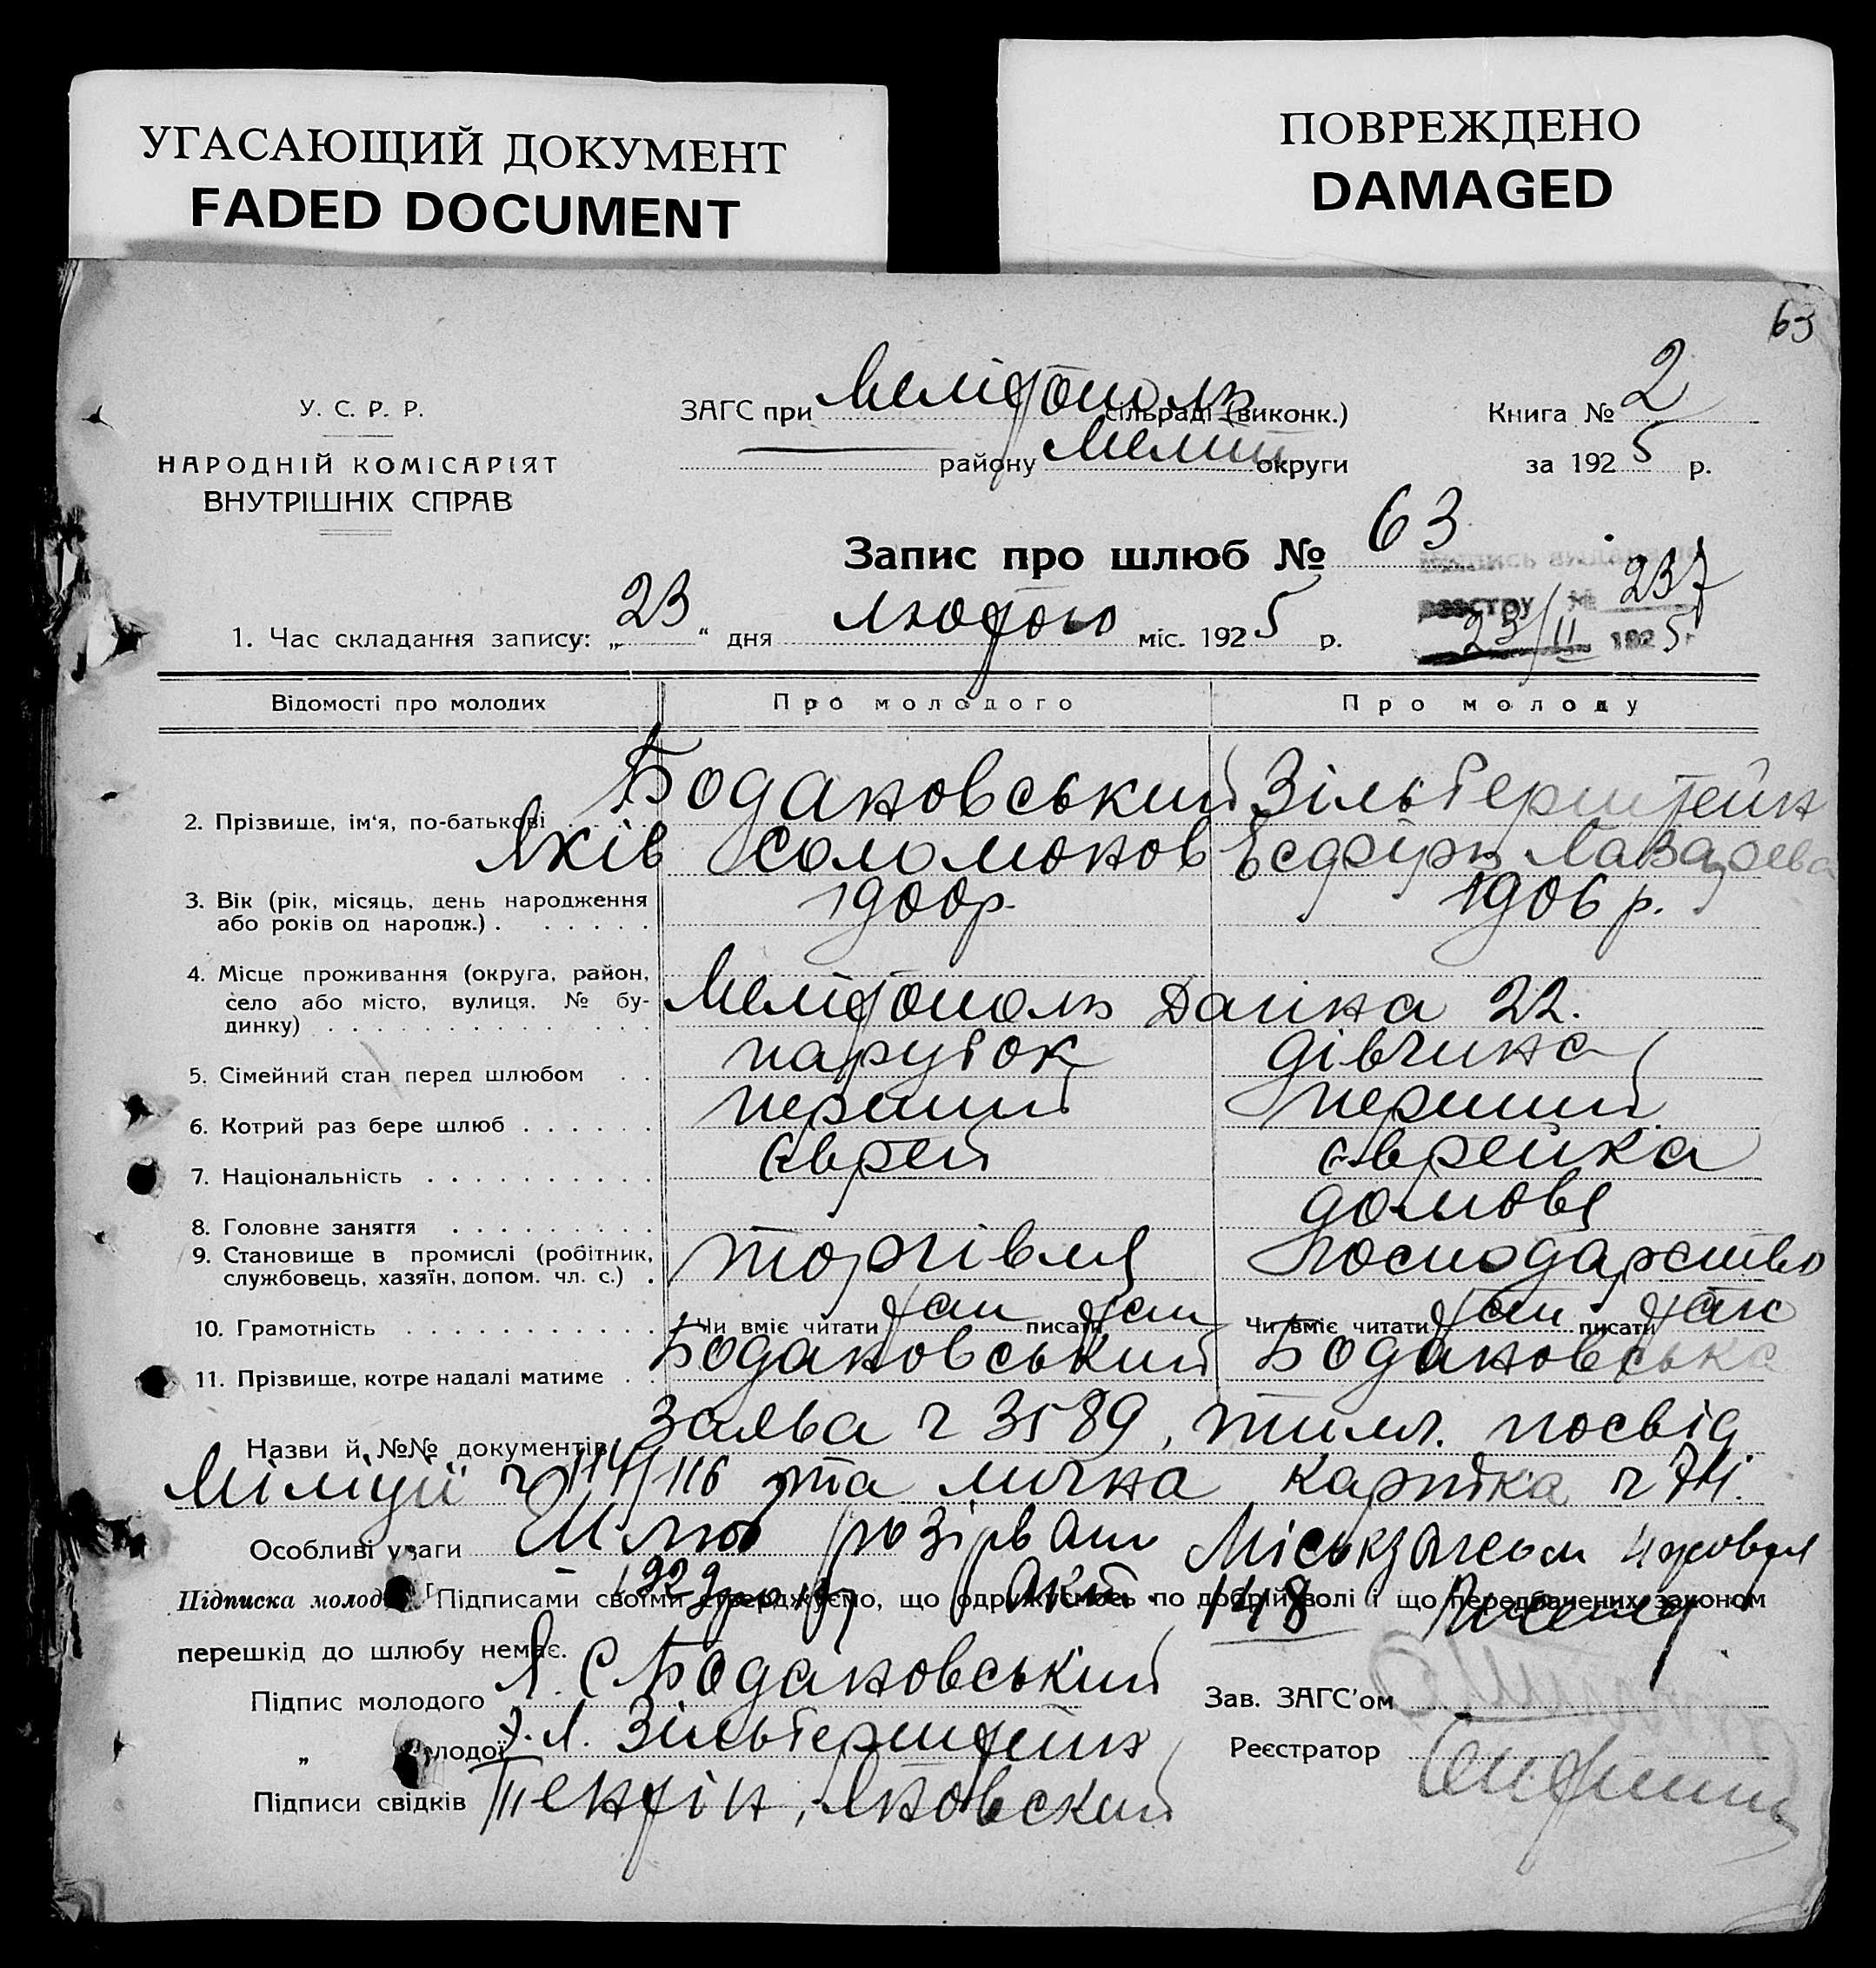 УГАСАЮЩИЙ ДОКУМЕНТ
FADED DOCUMENT
ПОВРЕЖДЕНО
DAMAGED
63
У. С. Р. Р.
НАРОДНІЙ КОМІСАРІЯТ
ВНУТРІШНІХ СПРАВ
ЗАГС при Мелітополь сільраді (виконк.)
району Меліт округи
Книга № 2
за 1925 р.
Запис про шлюб № 63
реєстру № 237
23/II 1925 р
1. Час складання запису: „23“ дня лютого міс. 1925 р.
Відомості про молодих Про молодого Про молоду
2. Прізвище, ім'я, по-батькові Бодановський Зільберштейн
Яків Соломонов Есфірь Лазарева
3. Вік (рік, місяць, день народження або років од народж.) 1900р. 1906 р.
4. Місце проживання (округа, район, село або місто, вулиця, № будинку) Мелітополь Даніна 22.
5. Сімейний стан перед шлюбом парубок дівчина
6. Котрий раз бере шлюб перший перший
7. Національність єврей єврейка
8. Головне заняття домове
9. Становище в промислі (робітник, службовець, хазяїн, допом. чл. с.) торгівля господарство
10. Грамотність Чи вміє читати так писати так Чи вміє читати так писати так
11. Прізвище, котре надалі матиме Бодановський Бодановська
Назви й №№ документів заява ч 3589, тимч. посвід
Міліції ч 114/116 та лична картка ч 741.
Особливі уваги Шлюб розірван Міськзагсом
1929 року акт 148
Підписка молодих Підписами своїми стверджуємо, що одружуємось по добрій волі і що передбачених законом
перешкід до шлюбу немає.
Підпис молодого Я. С Бодановський Зав. ЗАГС'ом
„ молодої Э. Л. Зільберштейн Реєстратор
Підписи свідків Тенфін, Яновский